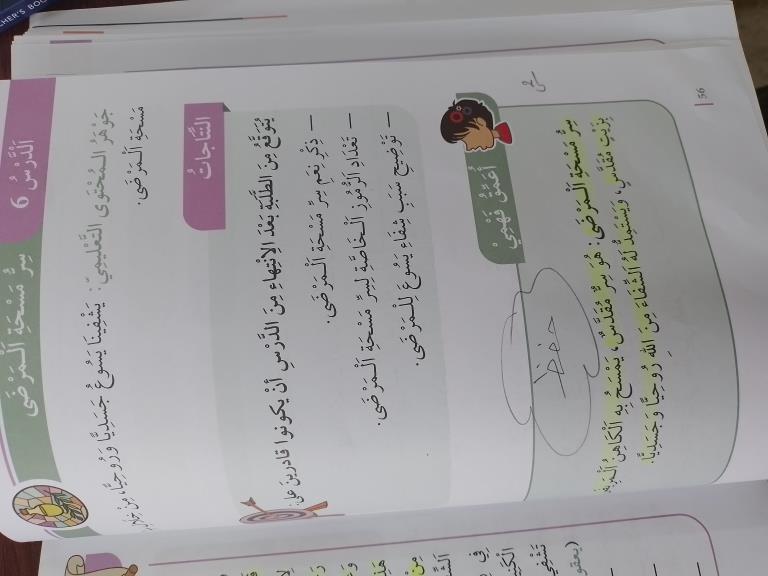 CHER'S BOOK
اَلدَّرْسُ 6
سِرُّ مَسْحَةِ الْمَرْضَى
جَوْهَرُ الْمُحْتَوى التَّعْلِيمِيِّ: يَشْفِينَا يَسُوعُ جَسَدِيًّا وَرُوحِيًّا، مِنْ خِلَالِ
مَسْحَةِ الْمَرْضَى.
النَّتَاجَاتُ
يُتَوَقَّعُ مِنَ الطَّلَبَةِ بَعْدَ الِانْتِهَاءِ مِنَ الدَّرْسِ أَنْ يَكُونُوا قَادِرِينَ عَلَى:
– ذِكْرِ نِعَمِ سِرِّ مَسْحَةِ الْمَرْضَى.
– تَعْدَادِ الرُّمُوزِ الْخَاصَّةِ لِسِرِّ مَسْحَةِ الْمَرْضَى.
– تَوْضِيحِ سَبَبِ شِفَاءِ يَسُوعَ لِلْمَرْضَى.
أُعَمِّقُ فَهْمِيْ
حفظ
سِرُّ مَسْحَةِ الْمَرْضَى: هُوَ سِرٌّ مُقَدَّسٌ، يَمْسَحُ بِهِ الْكَاهِنُ الْمَرِيضَ
بِزَيْتٍ مُقَدَّسٍ، وَيَسْتَمِدُّ لَهُ الشِّفَاءَ مِنَ اللهِ رُوحِيًّا وَجَسَدِيًّا.
56